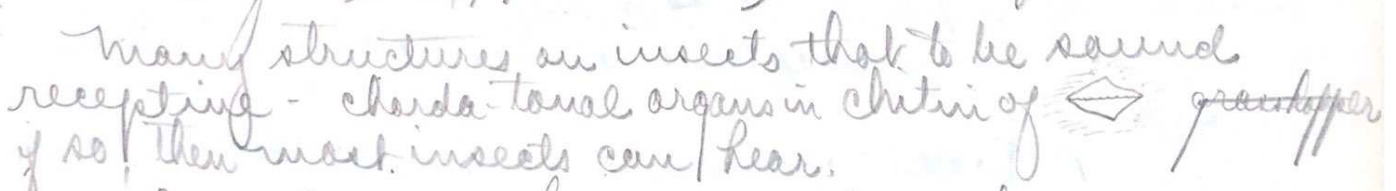 Many structures on insects thot to be sound
receptive - chorda-tonal organs in chitin of grasshopper
if so, then most insects can hear.